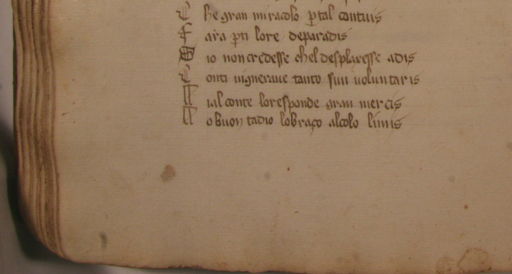 C he gran miracolo p tal convis
F ara p ti lo re de paradis
D io non credesse chel desplaxesse a dis
C onti vignerave tanto sun voluntaris
l conte lo responde gran mercis
o buon lo braço al colo li mis